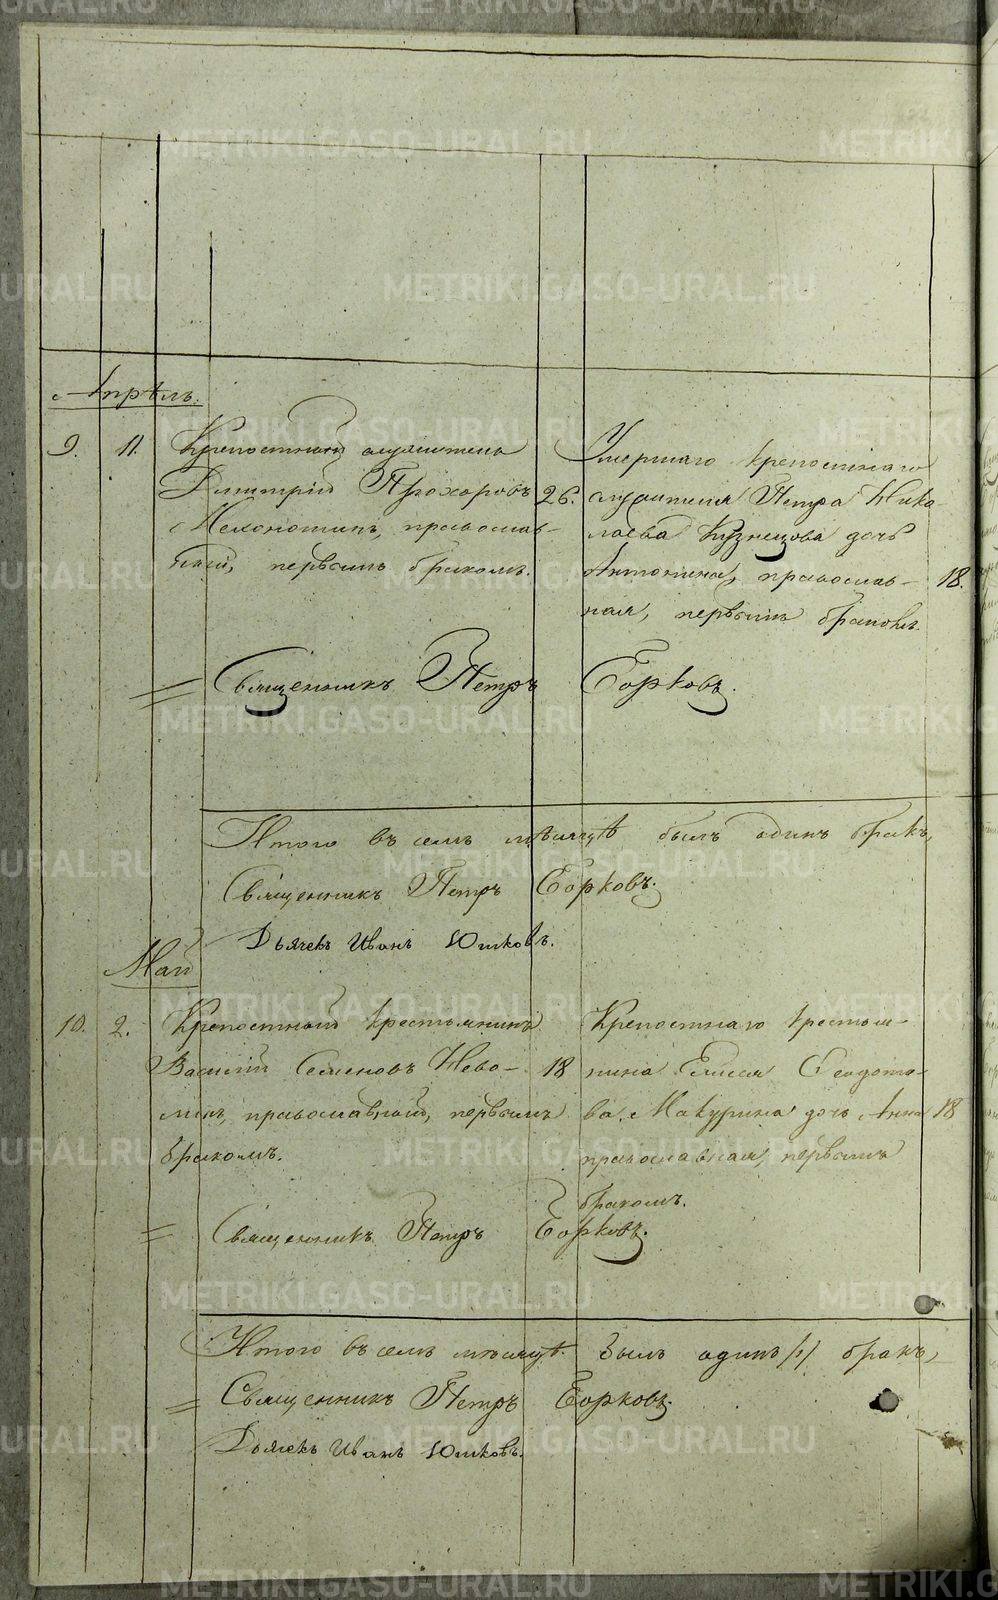 Апрѣль.
9. 11. Крѣпостный служитель
Димитрій Прохоровъ 26.
православ-
ный, первымъ бракомъ.
Умершаго крѣпостнаго
служителя Петра Нико-
лаева Кузнецова дочь
Антонина, православ- 18.
ная, первымъ бракомъ.
Священникъ Петръ Горковъ.
Итого въ семъ мѣсяцѣ былъ одинъ бракъ,
Священникъ Петръ Горковъ.
Дьячекъ Иванъ Юшковъ.
Май
10. 2. Крѣпостный крестьянинъ
Василій Семеновъ Нево- 18
линъ, православный, первымъ
бракомъ.
Крѣпостнаго крестья-
нина Елисея Ѳеодото-
ва Макурина дочь Анна 18
православная, первымъ
бракомъ.
Священникъ Петръ Горковъ.
Итого въ семъ мѣсяцѣ былъ одинъ /1/ бракъ,
Священникъ Петръ Горковъ.
Дьячекъ Иванъ Юшковъ.
METRIKI.GASO-URAL.RU